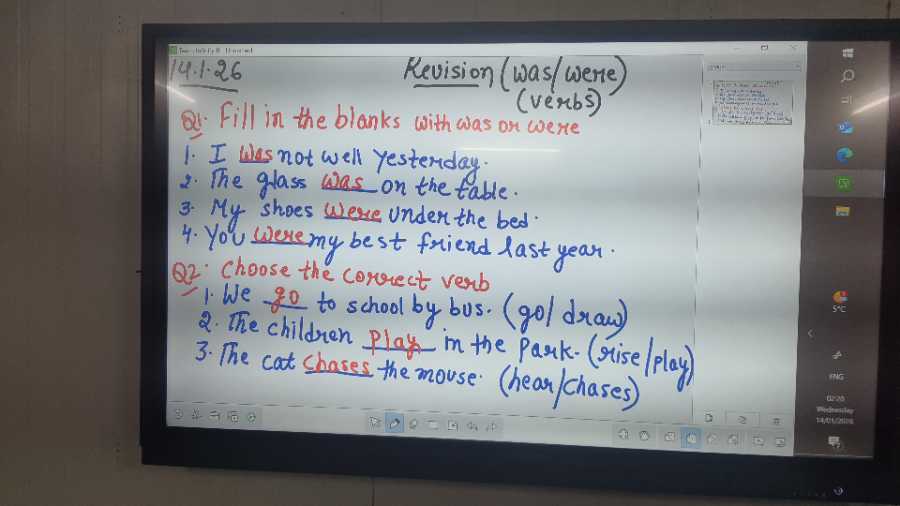 14.1.26
Revision (was/were)
(verbs)
Q1. Fill in the blanks with was or were
1. I was not well yesterday.
2. The glass was on the table.
3. My shoes were under the bed.
4. You were my best friend last year.
Q2. Choose the correct verb
1. We go to school by bus. (go/draw)
2. The children play in the park. (rise/play)
3. The cat chases the mouse. (hear/chases)
5°C
ENG
02:20
Wednesday
14/01/2026